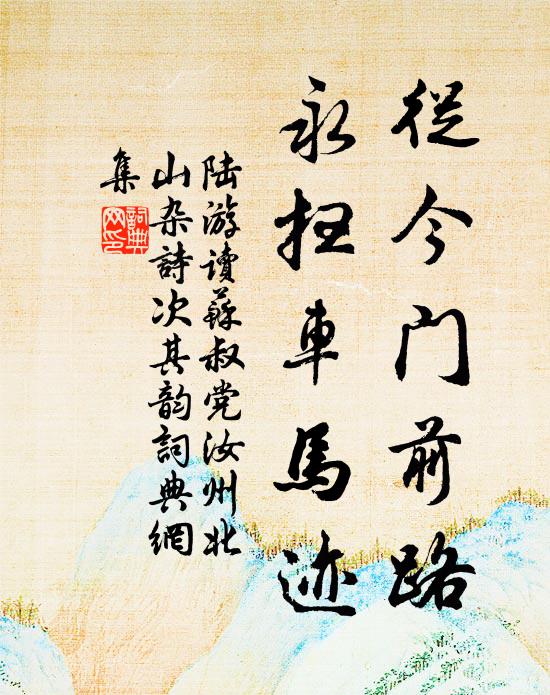 從今门前路
永扫車馬迹
陆游读蘇叔党汝州北
山杂詩次其韵詞典網
集
詞典
网印